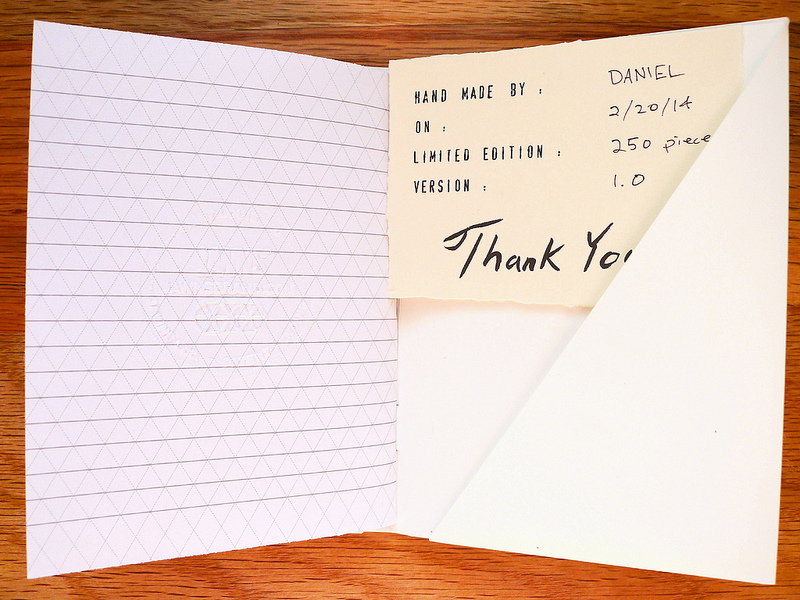 HAND MADE BY : DANIEL
ON : 2/20/14
LIMITED EDITION : 250 piece
VERSION : 1.0
Thank You